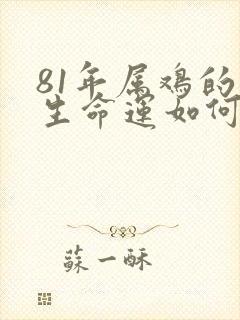 81年属鸡的
生命运如何
蘇一酥